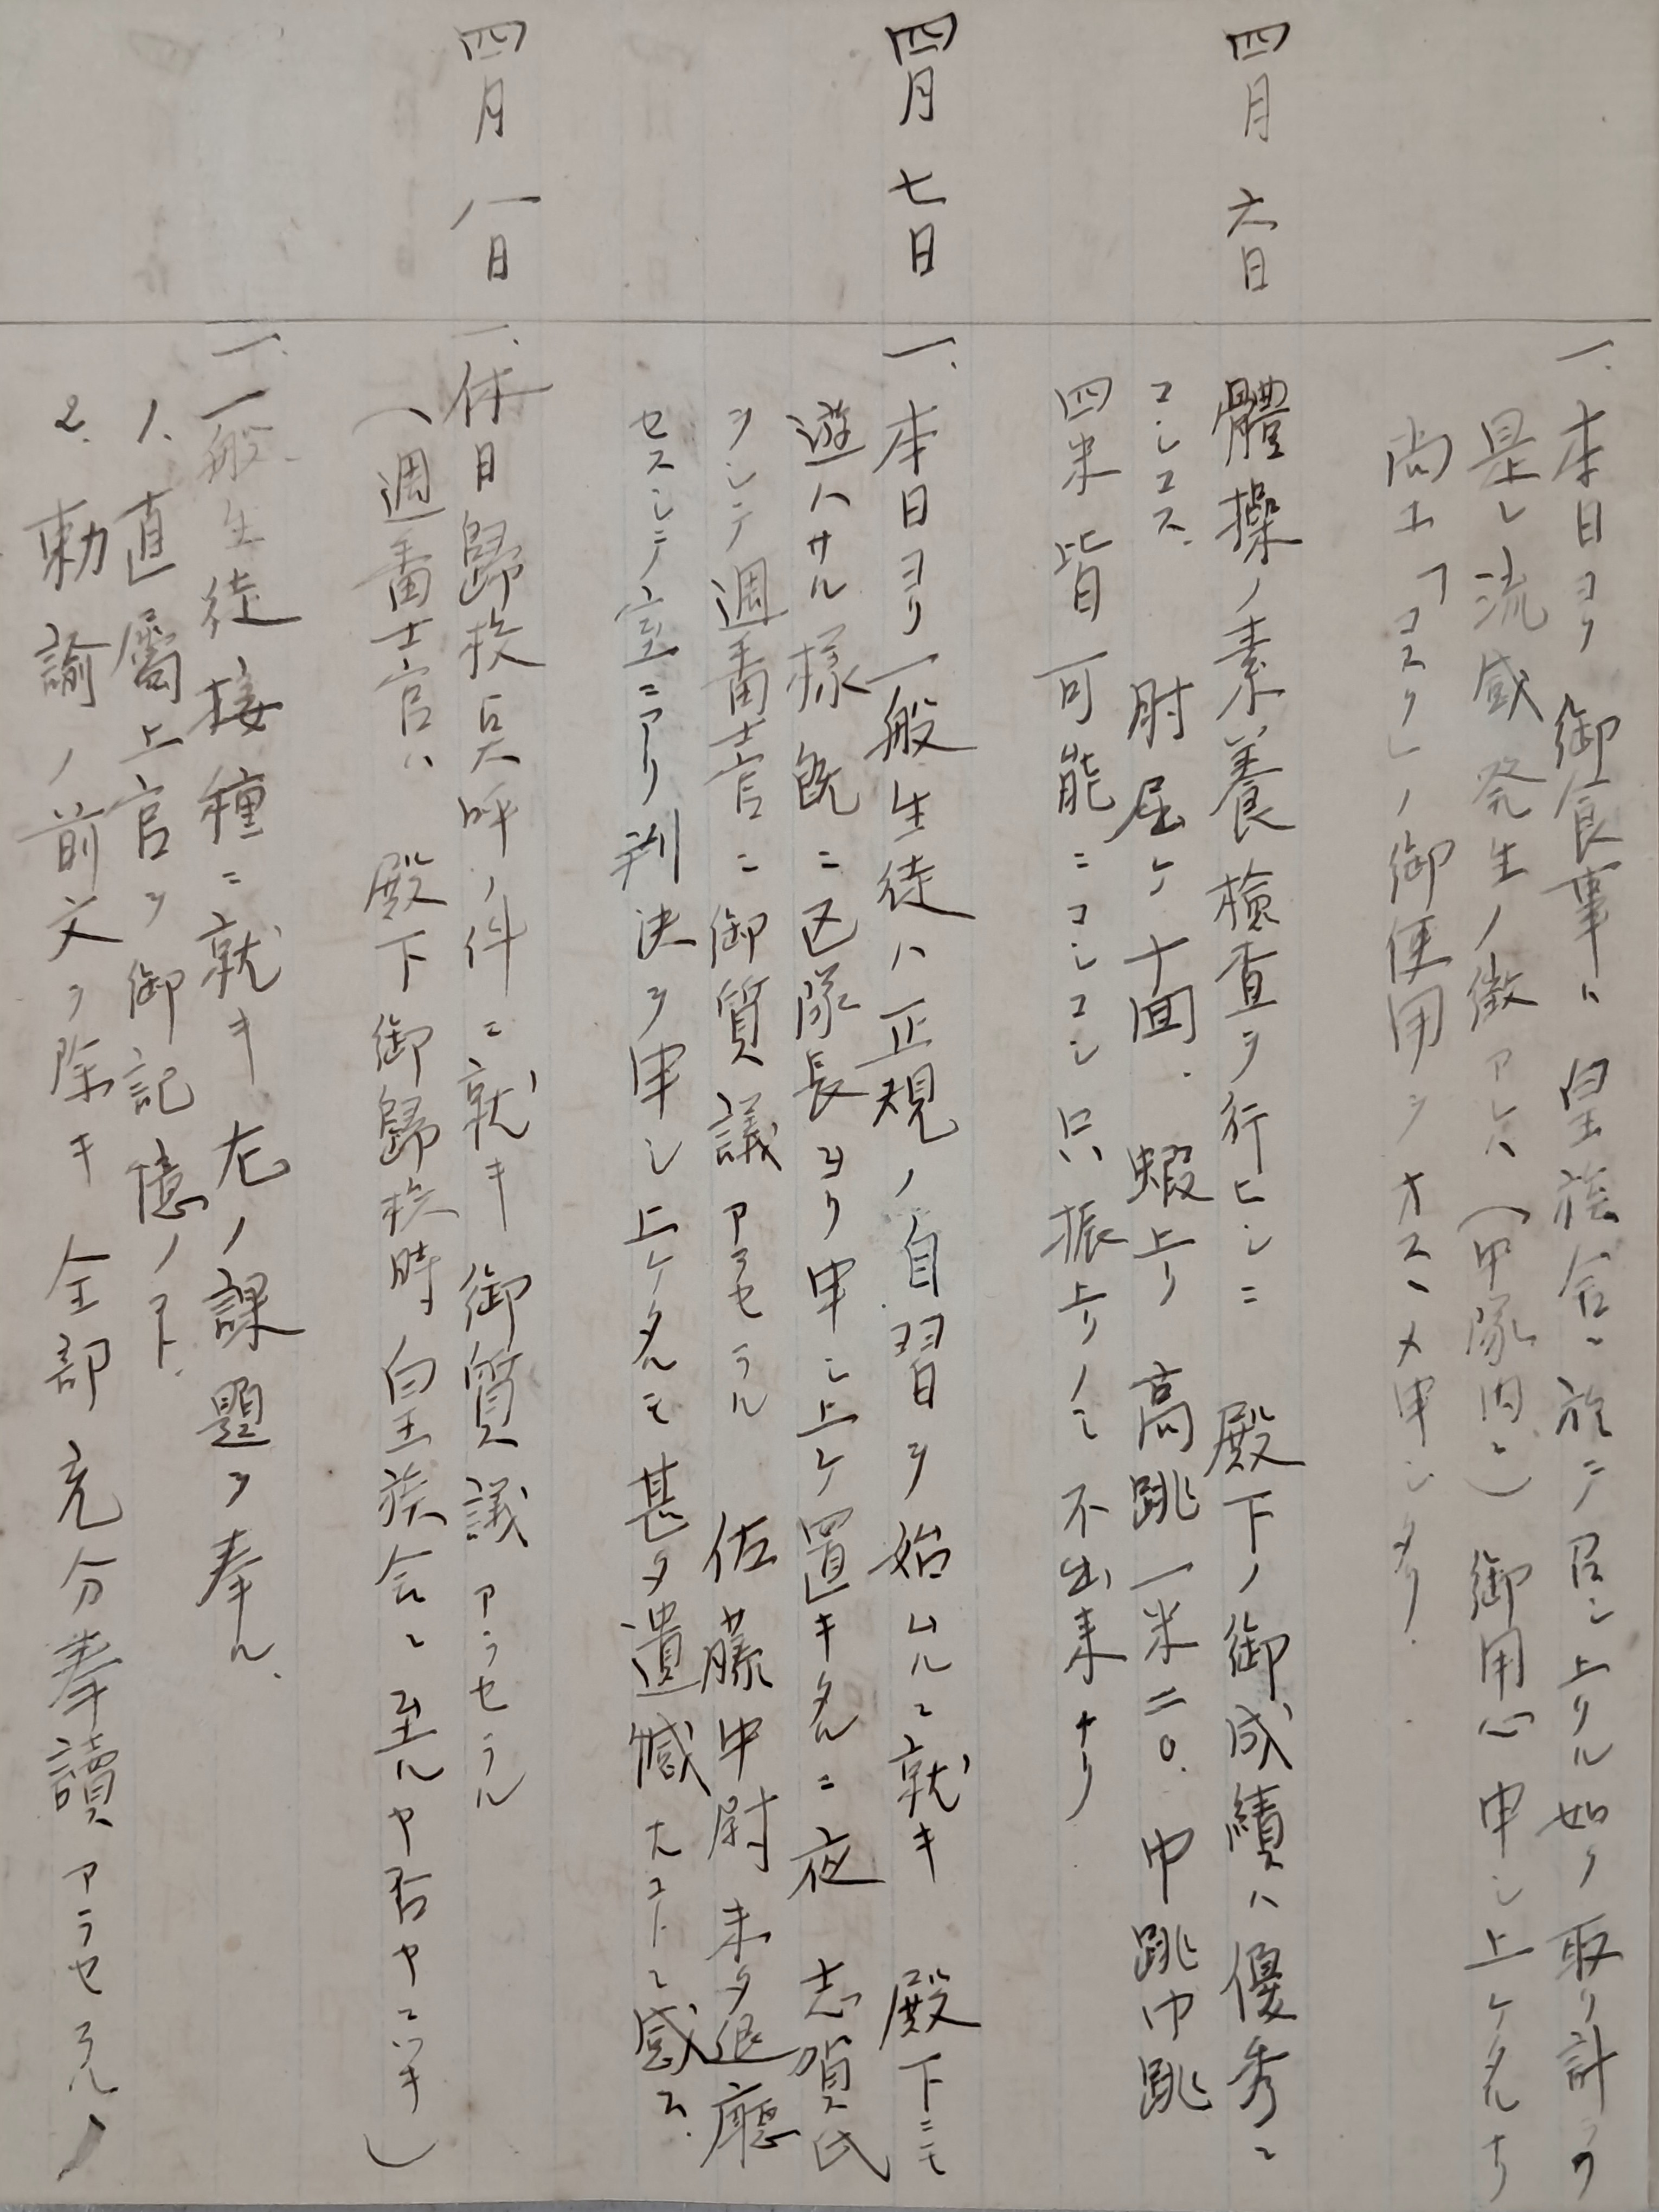 一、本日ヨリ御食事ハ 皇族舎ニ於テ召シ上リル如ク取リ計ラフ
是レ流感発生ノ徴アレハ(中隊内ニ)御用心申シ上ケタルナリ
尚ホ「コスク」ノ御使用ヲオスヽメ申シタリ.
四月六日
體操ノ素養檢査ヲ行ヒシニ 殿下ノ御成績ハ優秀ニ
コシコス. 肘屈ケ十回. 蝦上リ 高跳一米二〇. 中跳巾跳
四米皆可能ニコシコシ只振上リノミ不出来ナリ
四月七日
一、本日ヨリ一般生徒ハ正規ノ自習ヲ始ムルニ就キ 殿下ニモ
遊ハサル様既ニ区隊長ヨリ申シ上ケ置キタルニ夜 志賀氏
ヲシテ週番士官ニ御質議アラセラル 佐藤中尉未タ退廳
セスシテ室ニアリ判決ヲ申シ上ケタルモ甚タ遺憾ナコトニ感ス.
四月八日
一、休日歸校点呼ノ件ニ就キ御質議アラセラル
(週番士官ハ 殿下御歸校時皇族舎ニ至ルヤ否ヤニツキ)
一、一般生徒接種ニ就キ左ノ課題ヲ奉ル.
1. 直屬上官ヲ御記憶ノコト.
2. 勅諭ノ前文ヲ除キ全部充分奉讀アラセラル